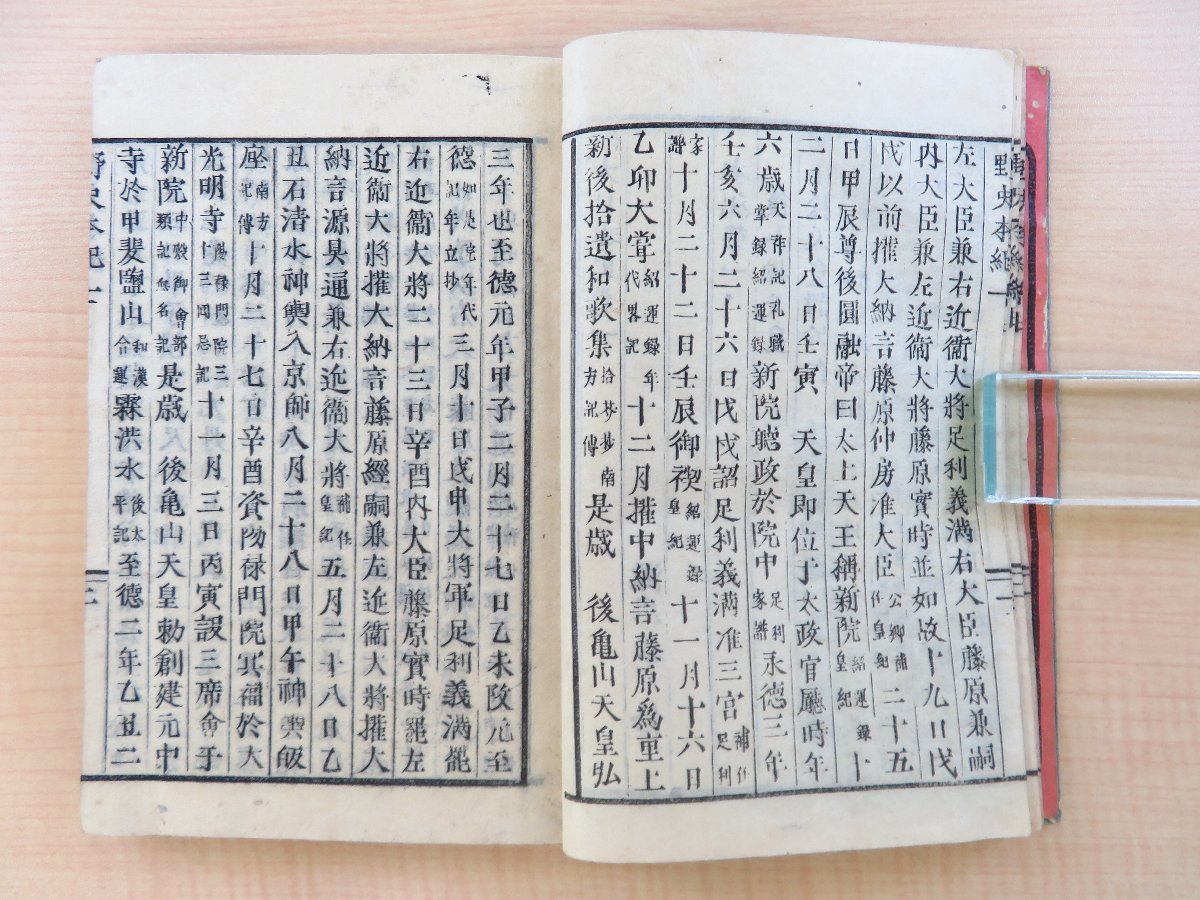 野史本紀一
左大臣兼右近衞大將足利義滿右大臣藤原兼嗣
内大臣兼左近衞大將藤原實時並如故十九日戊
戌以前權大納言藤原仲房准大臣公卿補任皇紀二十五
日甲辰尊後圓融帝曰太上天王稱新院紹運錄皇紀十
二月二十八日壬寅 天皇即位于太政官廳時年
六歲天祚記礼職掌錄紹運錄新院聽政於院中足利家譜永德三年
壬亥六月二十六日戊戌詔足利義滿准三宮補任足利
家譜十月二十二日壬辰御禊紹運錄皇紀十一月十六日
乙卯大嘗紹運錄年代畧記十二月權中納言藤原爲重上
新後拾遺和歌集拾芥抄南方記傳是歲 後亀山天皇弘
三年也至德元年甲子二月二十七日乙未改元至
德如是院年代記年立抄三月十日戊甲大將軍足利義滿罷
右近衞大將二十三日辛酉内大臣藤原實時罷左
近衞大將權大納言藤原經嗣兼左近衞大將權大
納言源具通兼右近衞大將補任皇紀五月二十八日乙
丑石清水神輿入京師八月二十八日甲午神輿皈
座南方記傳十月二十七日辛酉資陽祿門院冥福於大
光明寺陽祿門院三十三回忌記十一月三日丙寅設三席會于
新院中殿御會部類記無名記是歲 後亀山天皇勅創建元中
寺於甲斐鹽山和漢合運霖洪水後太平記至德二年乙丑二
野史本紀一
二